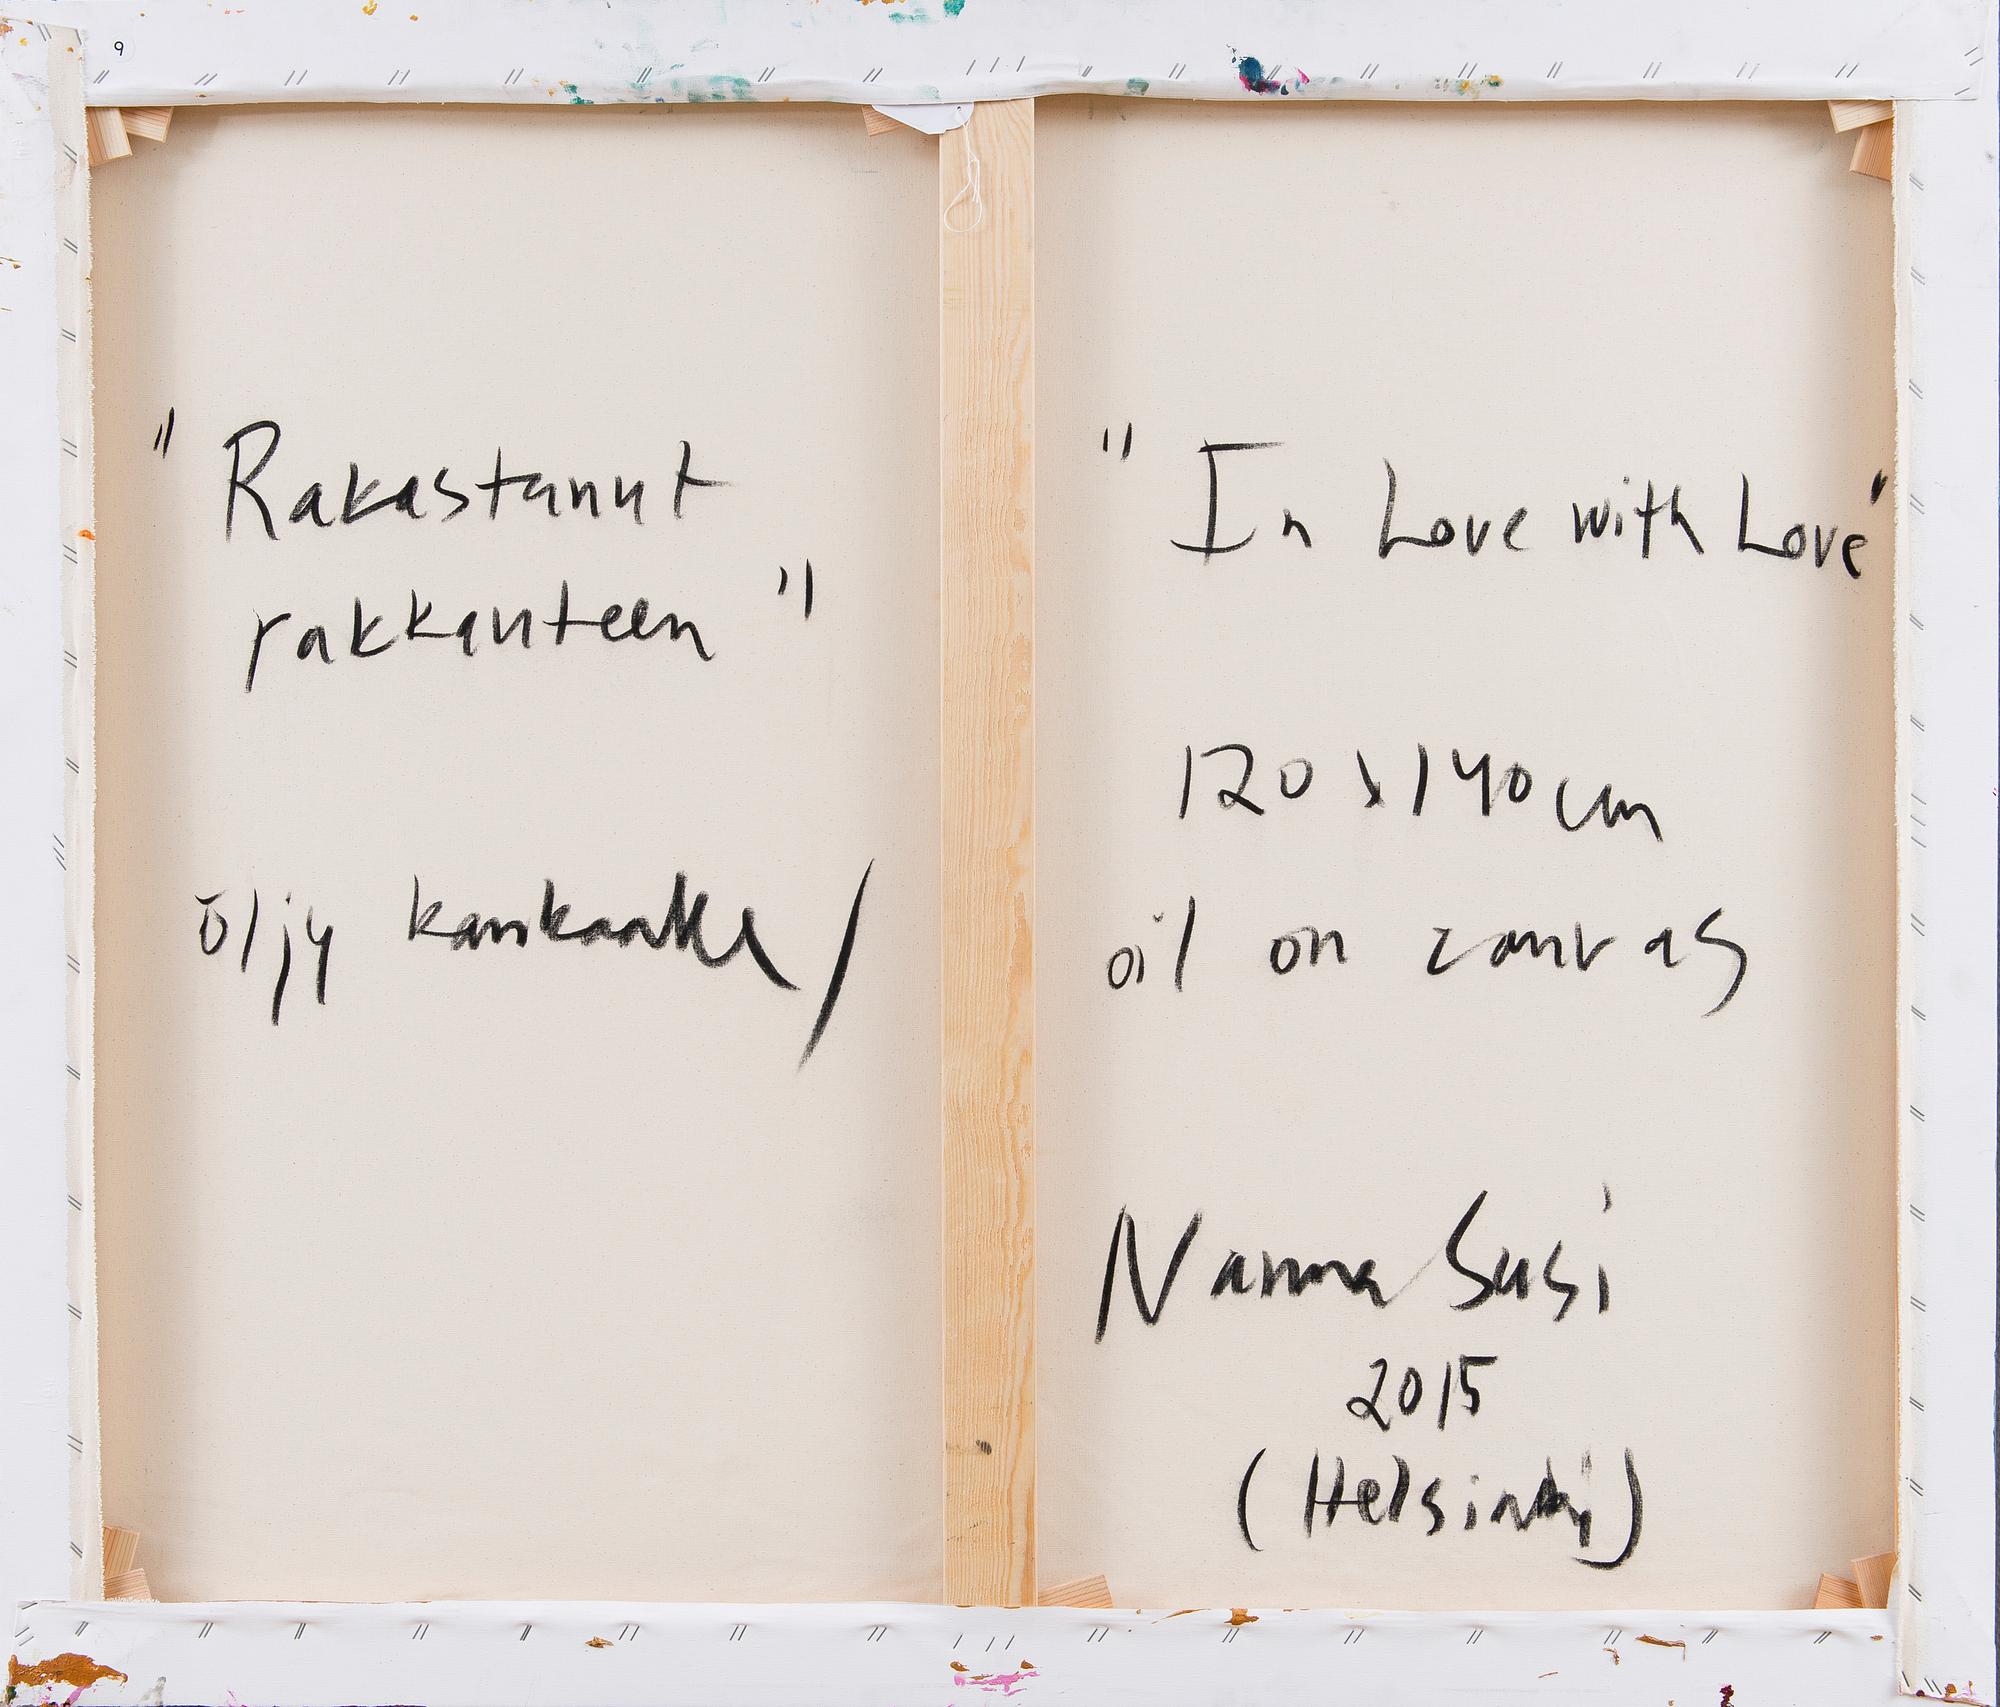 9
" Rakastunut
rakkauteen "
öljy kankaalle /
" In Love with Love"
120 x 140 cm
oil on canvas
Nanna Susi
2015
(Helsinki)